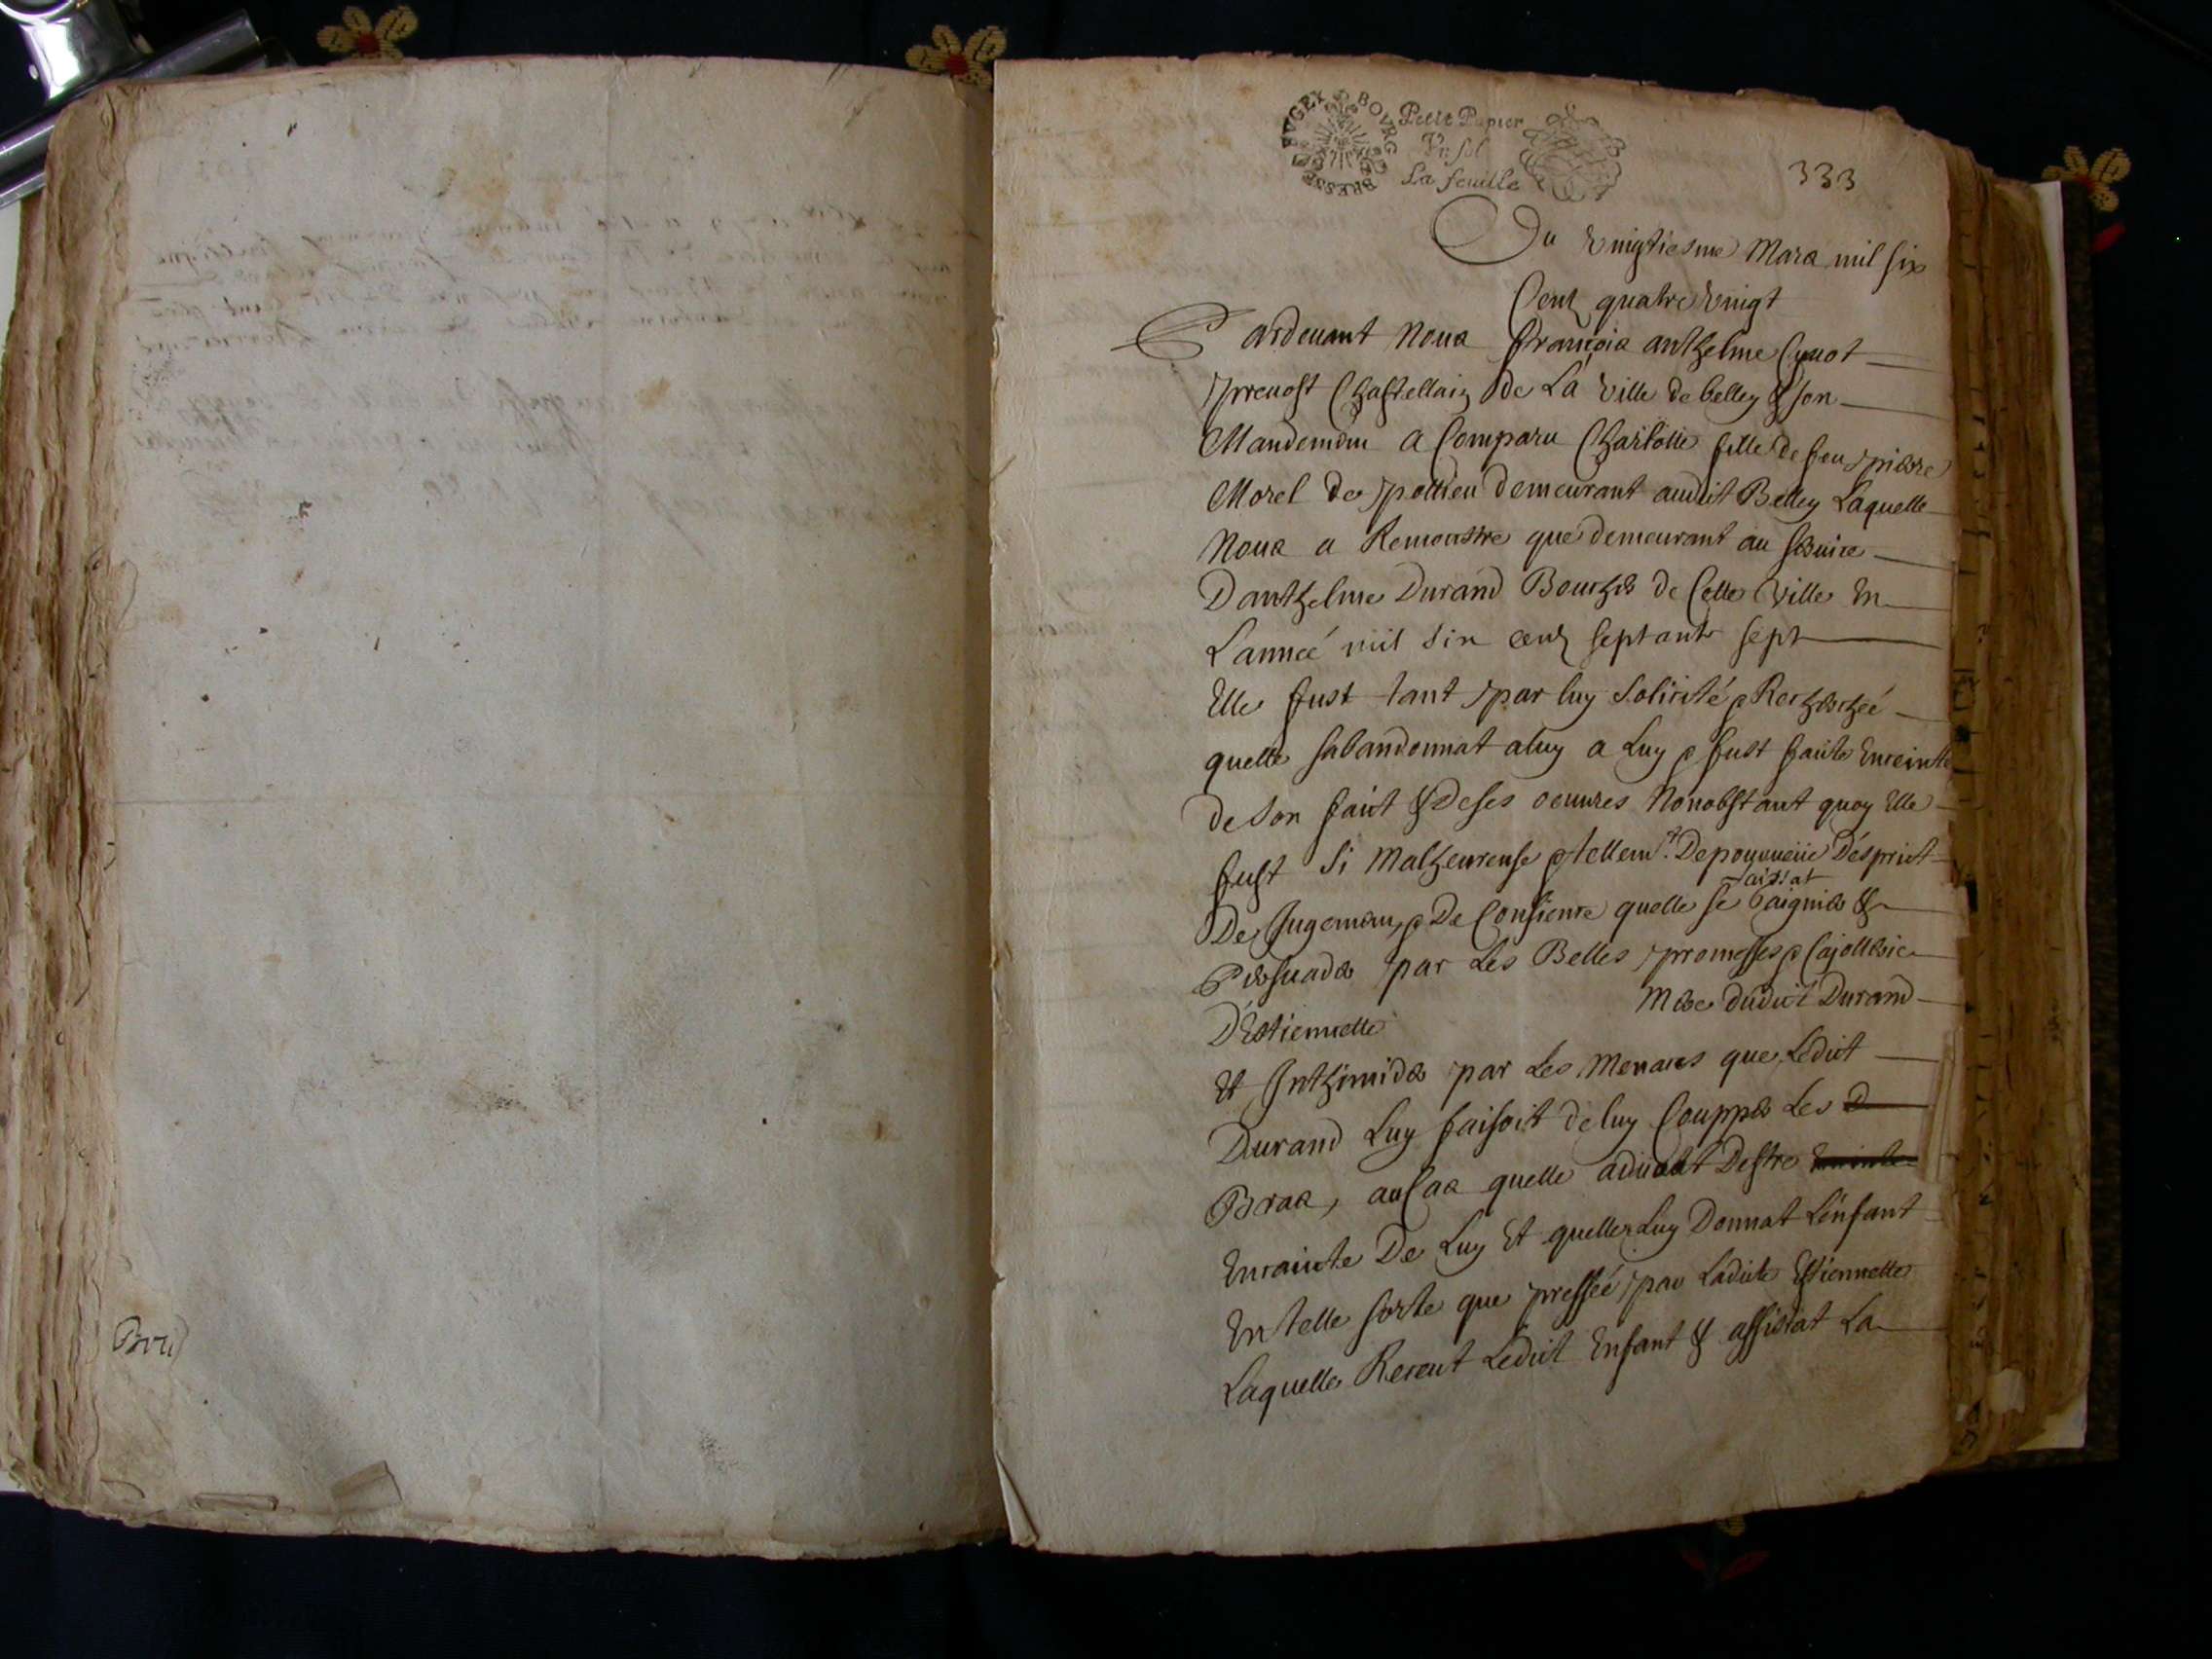 BRESSE BVGEY BOVRG
Petit Papier
Vn sol
La feuille
333
Du vingtiesme Mars mil six
Cent quatre vingt
Pardeuant Nous François anthelme Cyuot
preuost Chastellain de La ville de belley & son
Mandement a Comparu Charlotte fille de feu pierre
Morel de pollieu demeurant audit Belley Laquelle
Nous a Remonstre que demeurant au seruice
Danthelme Durand Bourgeois de Cette ville En
L'année mil six cent septante sept
Elle fust tant par luy Solicité & Recherchée
quelle sabandonnat aluy a Luy & fust faicte Enceinte
de son faict & de ses oeuures Nonobstant quoy Elle
fust si Malheureuse & tellemt. Depourueüe D'esprict
laissat
De Jugement & De Consience quelle se gaigner &
Persuader par Les Belles promesses & Cajollerie
D'Estiennette Mere dudict Durand
Et Inthimider par Les Menaces que Ledict
Durand Luy faisoit de luy Coupper Les D
Bras, au Cas quelle aduouat Destre Enceinte
Encainte De Luy Et quelle Luy Donnat L'enfant
En telle sorte que pressée par Ladicte Estiennette
Laquelle Receut Ledict Enfant & assistat La